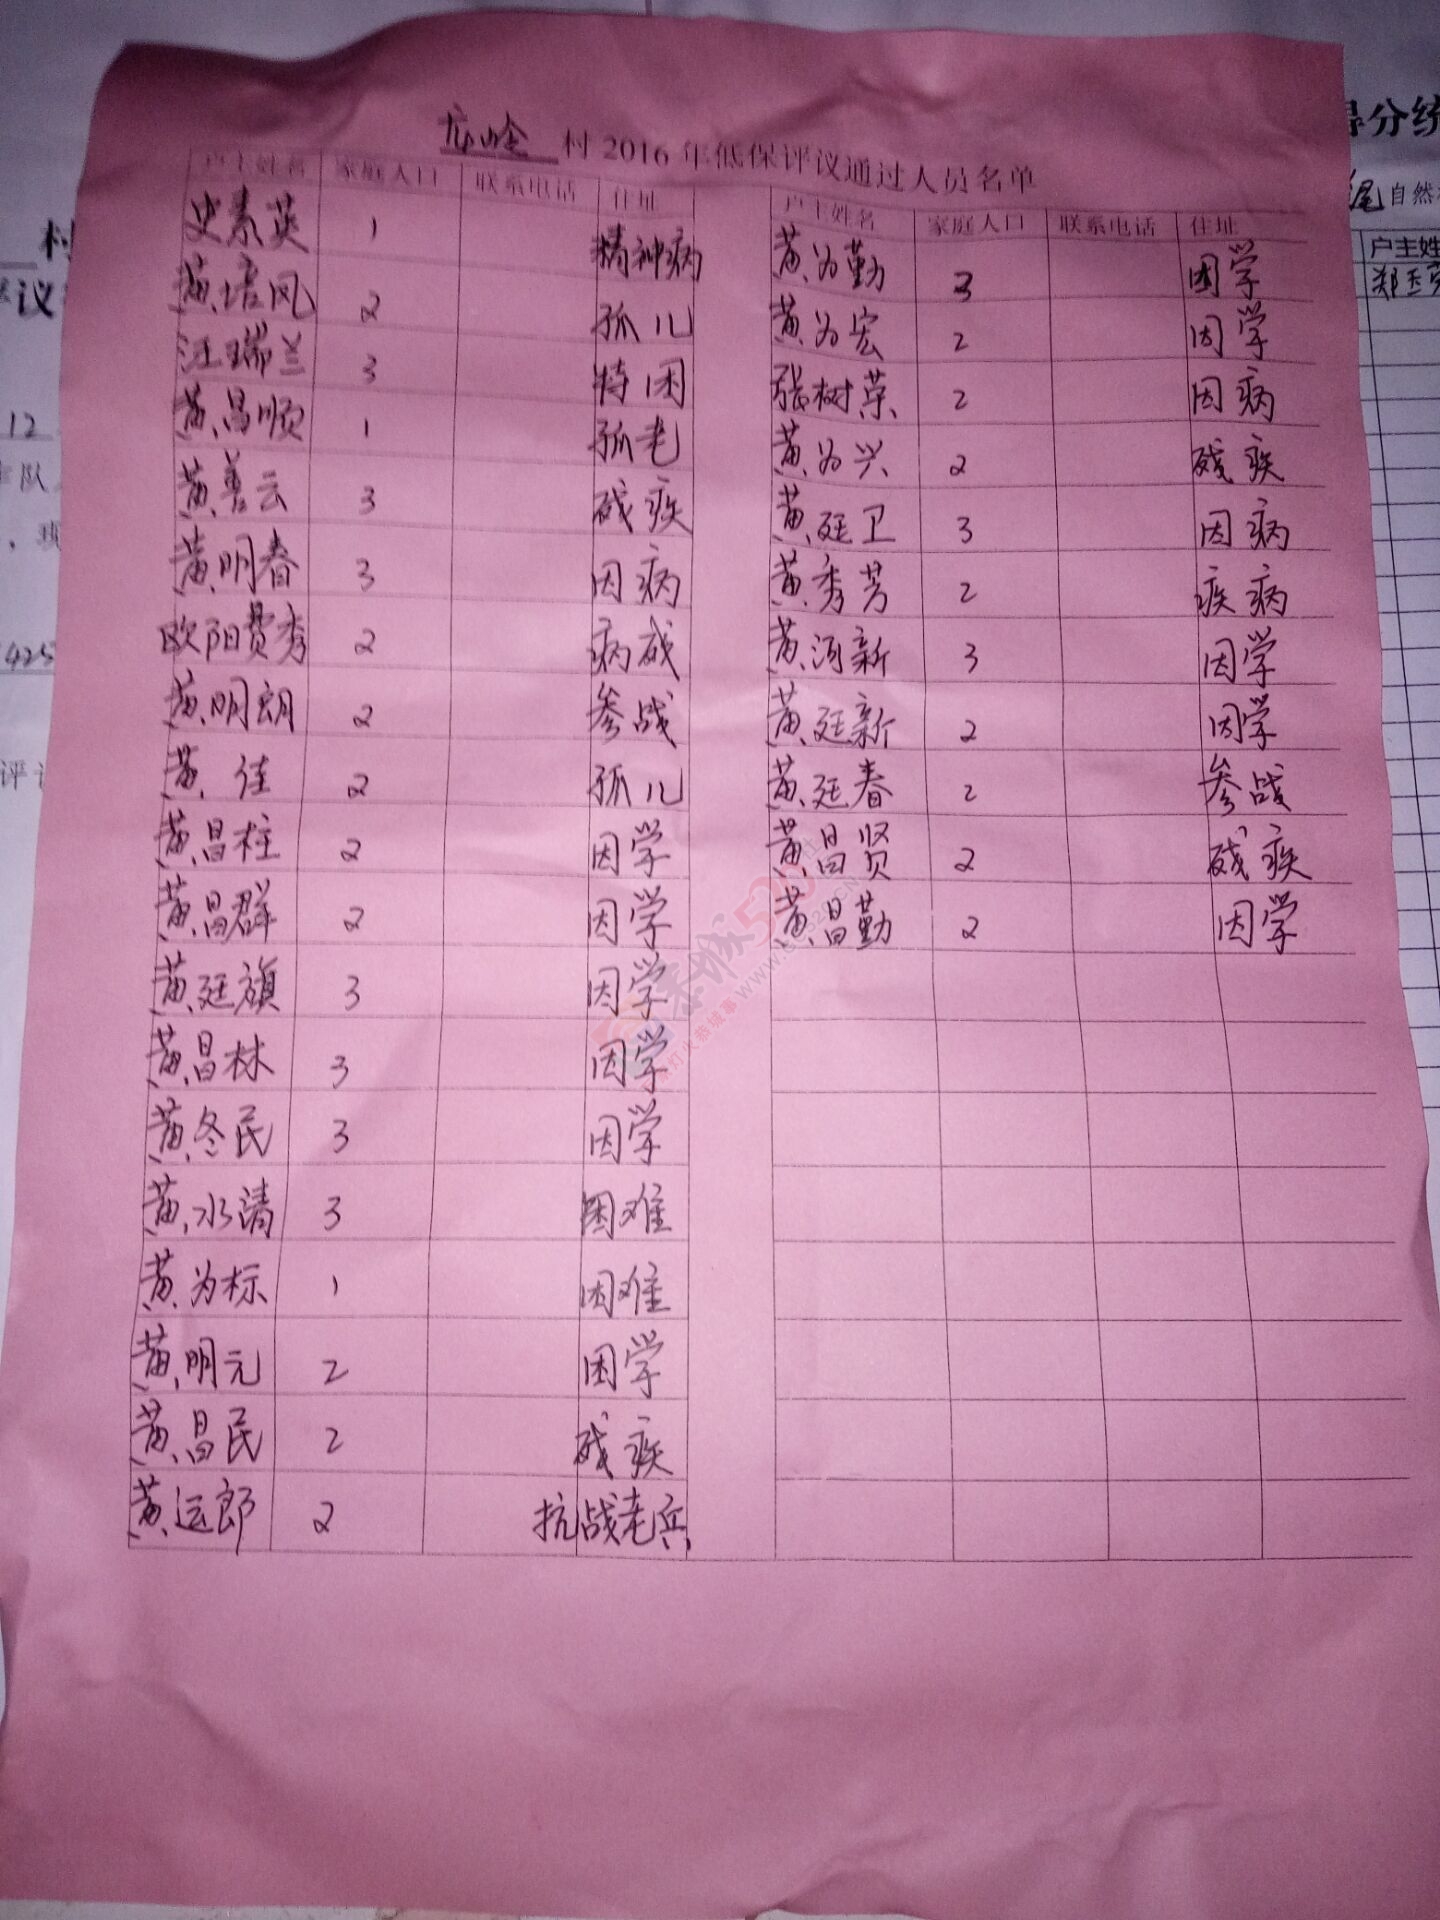 龙岭 村2016年低保评议通过人员名单
户主姓名 家庭人口 联系电话 住址
史素英 1 精神病
黄培凤 2 孤儿
汪瑞兰 3 特困
黄昌顺 1 孤老
黄善云 3 残疾
黄明春 3 因病
欧阳贵秀 2 病残
黄明朗 2 参战
黄佳 2 孤儿
黄昌柱 2 因学
黄昌群 2 因学
黄廷旗 3 因学
黄昌林 3 因学
黄冬民 3 因学
黄水清 3 困难
黄为标 1 困难
黄明元 2 因学
黄昌民 2 残疾
黄运郎 2 抗战老兵
户主姓名 家庭人口 联系电话 住址
黄为勤 3 因学
黄为宏 2 因学
张树荣 2 因病
黄为兴 2 残疾
黄廷卫 3 因病
黄秀芳 2 疾病
黄河新 3 因学
黄廷新 2 因学
黄廷春 2 参战
黄昌贤 2 残疾
黄昌勤 2 因学
得分统
尾 自然
户主姓
村
议
12
队
425
评
恭城520